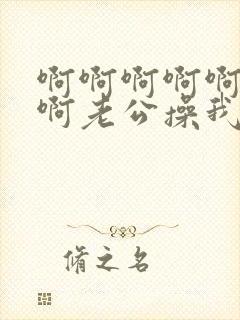 啊啊啊啊啊
啊老公操我
脩之名